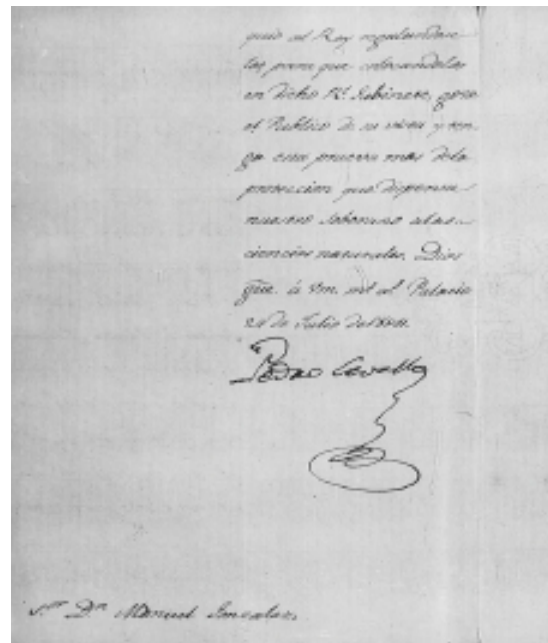 quio al Rey regalandose
los, para que colocandolos
en dicho Rl. Gabinete, goze
el Publico de su vista y ten-
ga esta prueba mas dela
proteccion que dispensa
nuestro Soberano alas
ciencias naturales. Dios
gue. á Vm. ms. as. Palacio
24 de Julio de
Pedro Cevallos
Sor. Dn. Manuel Gonzalez.